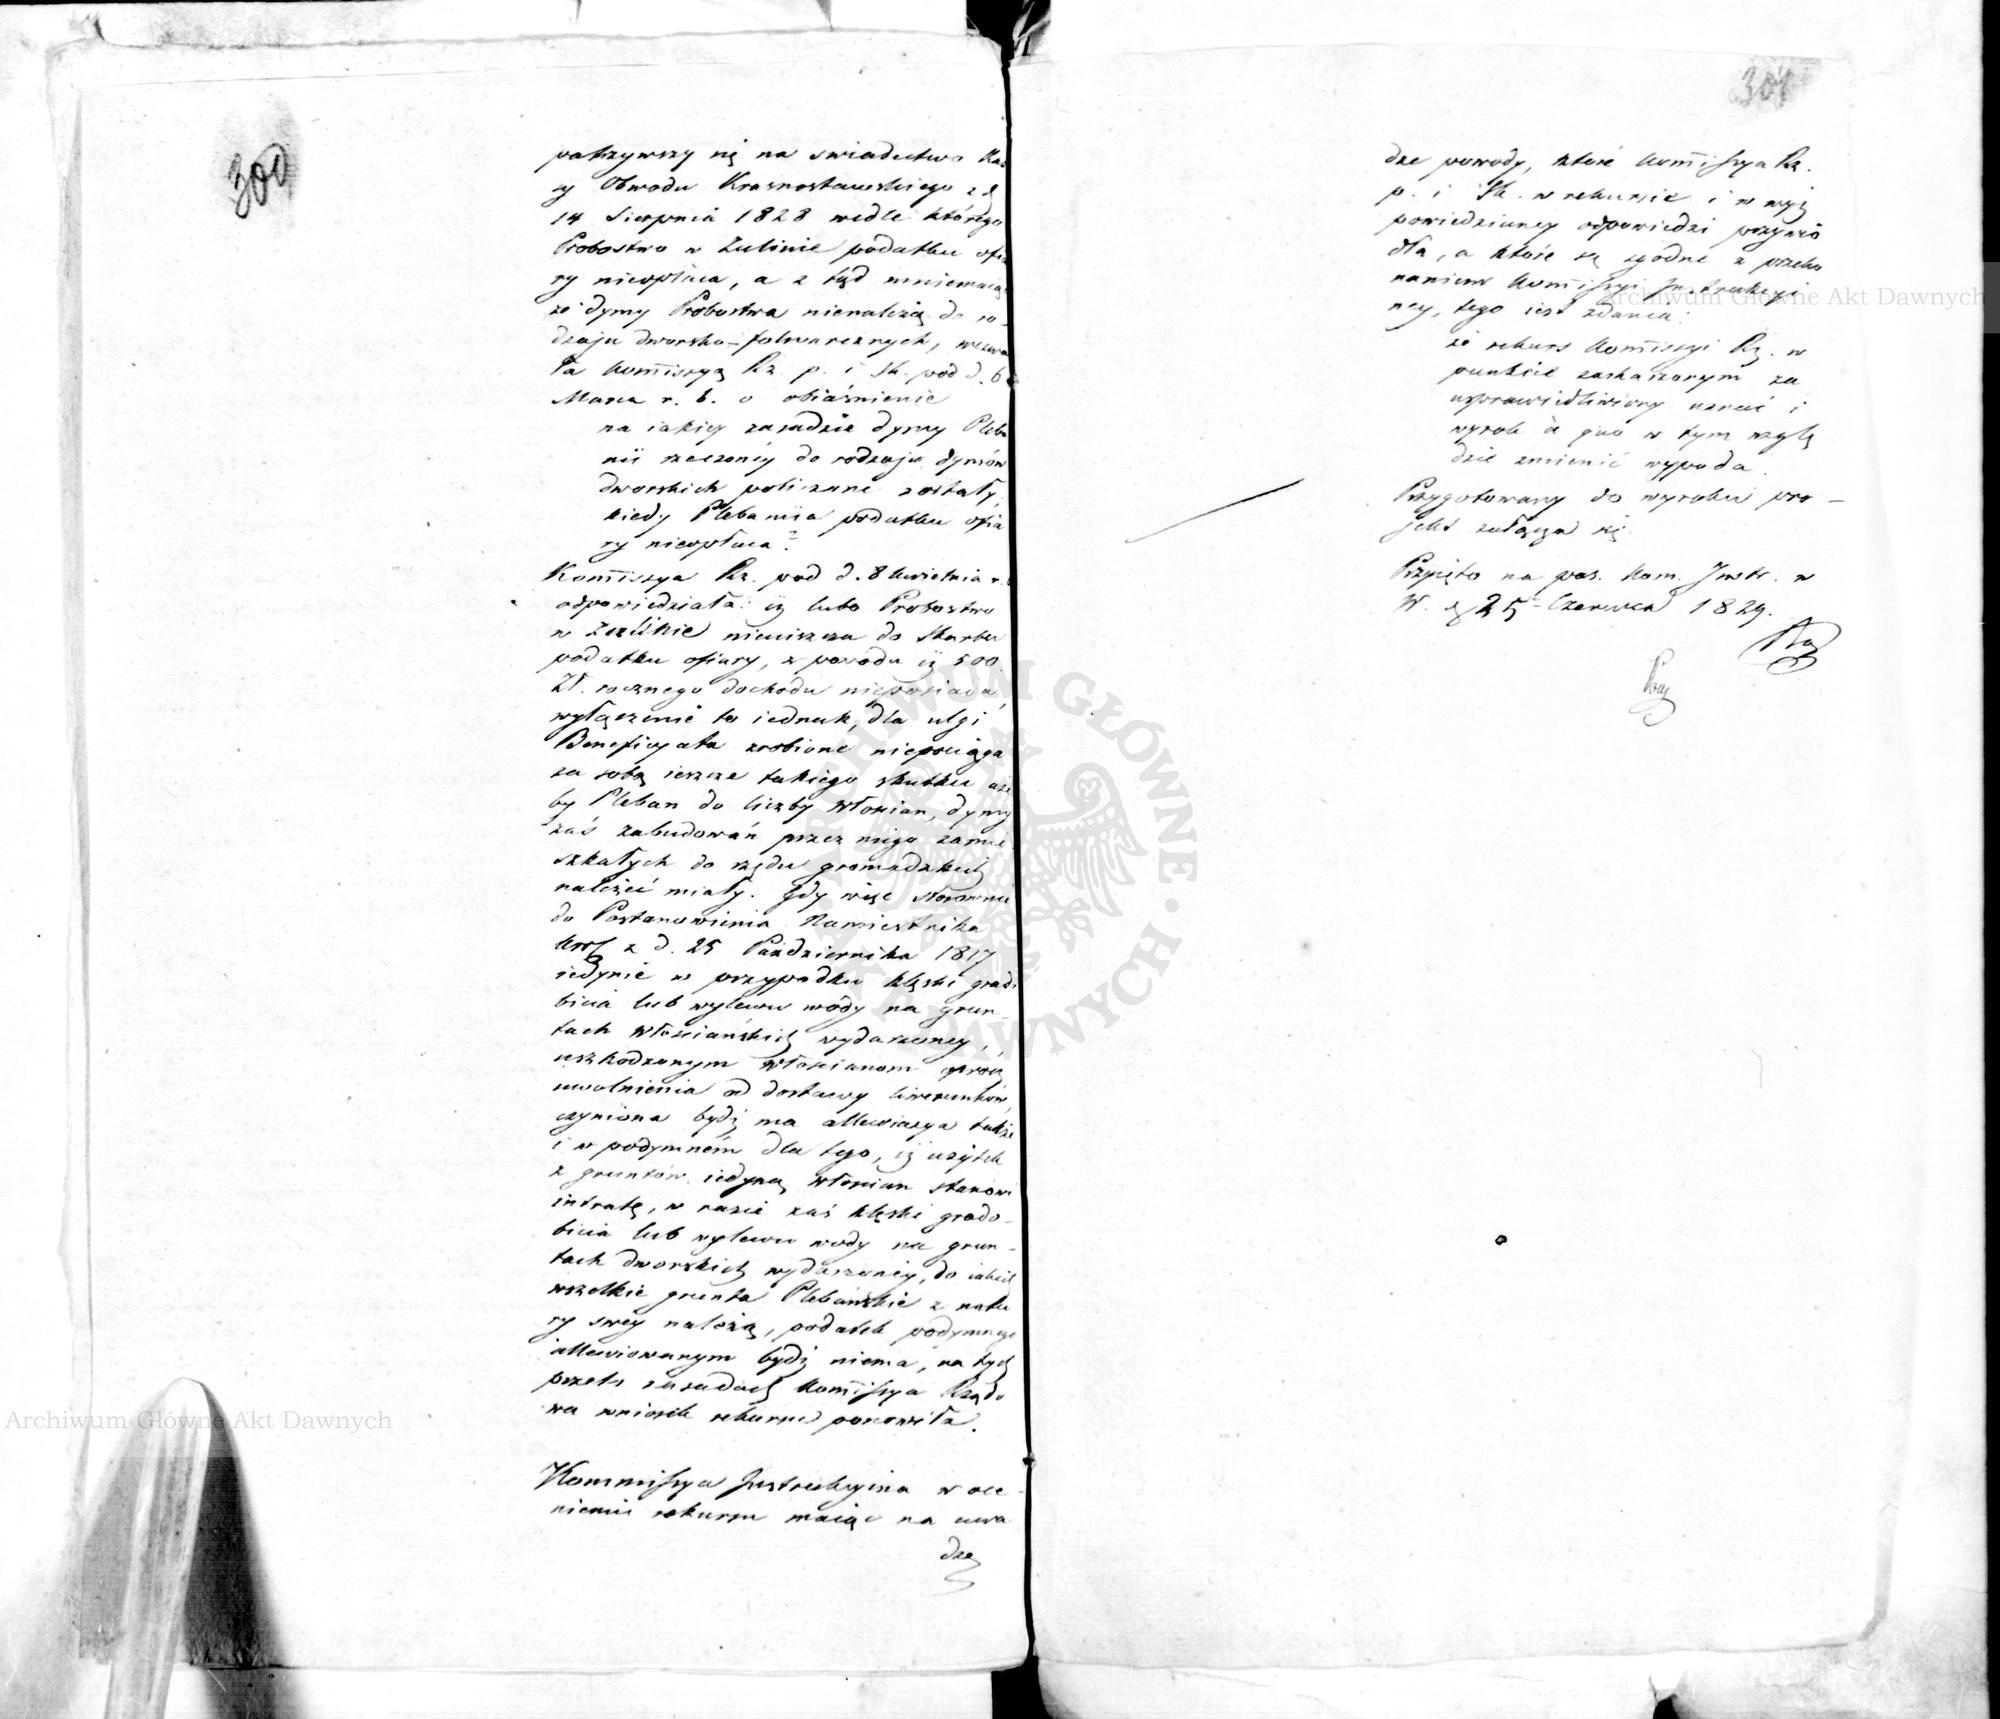 300
patrzywszy się na swiadectwo Kas
sy Obwodu Krasnostawskiego z d
14 Sierpnia 1828 wedle którego
Probostwo w Żulinie podatku ofia
ry nieopłaca, a z tąd mniemaiąc
że dymy Probostwa nienależą do ro-
dzaju dworsko-folwarcznych, wezwa
ła Kommissyą Rz. p. i Sk. pod d. 6
Marca r. b. o obiaśnienie
na iakiey zasadzie dymy Pleba
nii rzeczoney do rodzaju dymów
dworskich policzone zostały,
kiedy Plebaniia podatku ofia
ry nieopłaca?
Kommissya Rz. pod d. 8 Kwietnia r.
odpowiedziała: iż lubo Probostwo
w Żulinie nieuiszcza do Skarbu
podatku ofiary, z powodu iż 500
Zł. rocznego dochodu nieposiada,
wyłączenie to iednak, dla ulgi
Beneficyata zrobione niepociąga
za sobą ieszcze takiego skutku aże
by Pleban do liczby Włościan, dymy
zaś zabudowań przez niego zamie
szkałych do rzędu gromadzkich
należeć miały. Gdy więc stosownie
do Postanowienia Namiestnika
Król z d. 25 Października 1817
iedynie w przypadku klęski grado
bicia lub wylewu wody na grun-
tach Włościańskich wydarzoney,
uszkodzonym Włościanom oprócz
uwolnienia od dostawy liwerunków,
czyniona bydź ma allewiacya także
i w podymném dla tego, iż użytek
z gruntów iedyną Włościan stanowi
intratę, w razie zaś klęski grado-
bicia lub wylewu wody na grun-
tach dworskich wydarzoney, do iakich
wszelkie grunta Plebańskie z natu
ry swey należą, podatek podymnego
allewiowanym bydź niema, na tych
przeto zasadach Kommissya Rządo
wa wniosek rekursu ponowiła.
Kommissya Instrukcyina w oce-
nieniu rekursu maiąc na uwa
dze
301
dze powody, które Kommissya Rz.
p. i Sk. w rekursie i w wyż
powiedzianey odpowiedzi przywio
dła, a które są zgodne z przeko
naniem Kommissyi Instrukcyi
ney, tego iest zdania:
że rekurs Kommissyi Rz. w
punkcie zaskarżonym za
usprawiedliwiony uznać i
wyrok à quo w tym wzglę
dzie zmienić wypada.
Przygotowany do wyroku pro-
jekt załącza się.
Przyięto na pos. Kom. Instr. w
W. d 25 Czerwca 1829.
ARCHIWUM GŁÓWNE AKT DAWNYCH
Archiwum Główne Akt Dawnych
Archiwum Główne Akt Dawnych